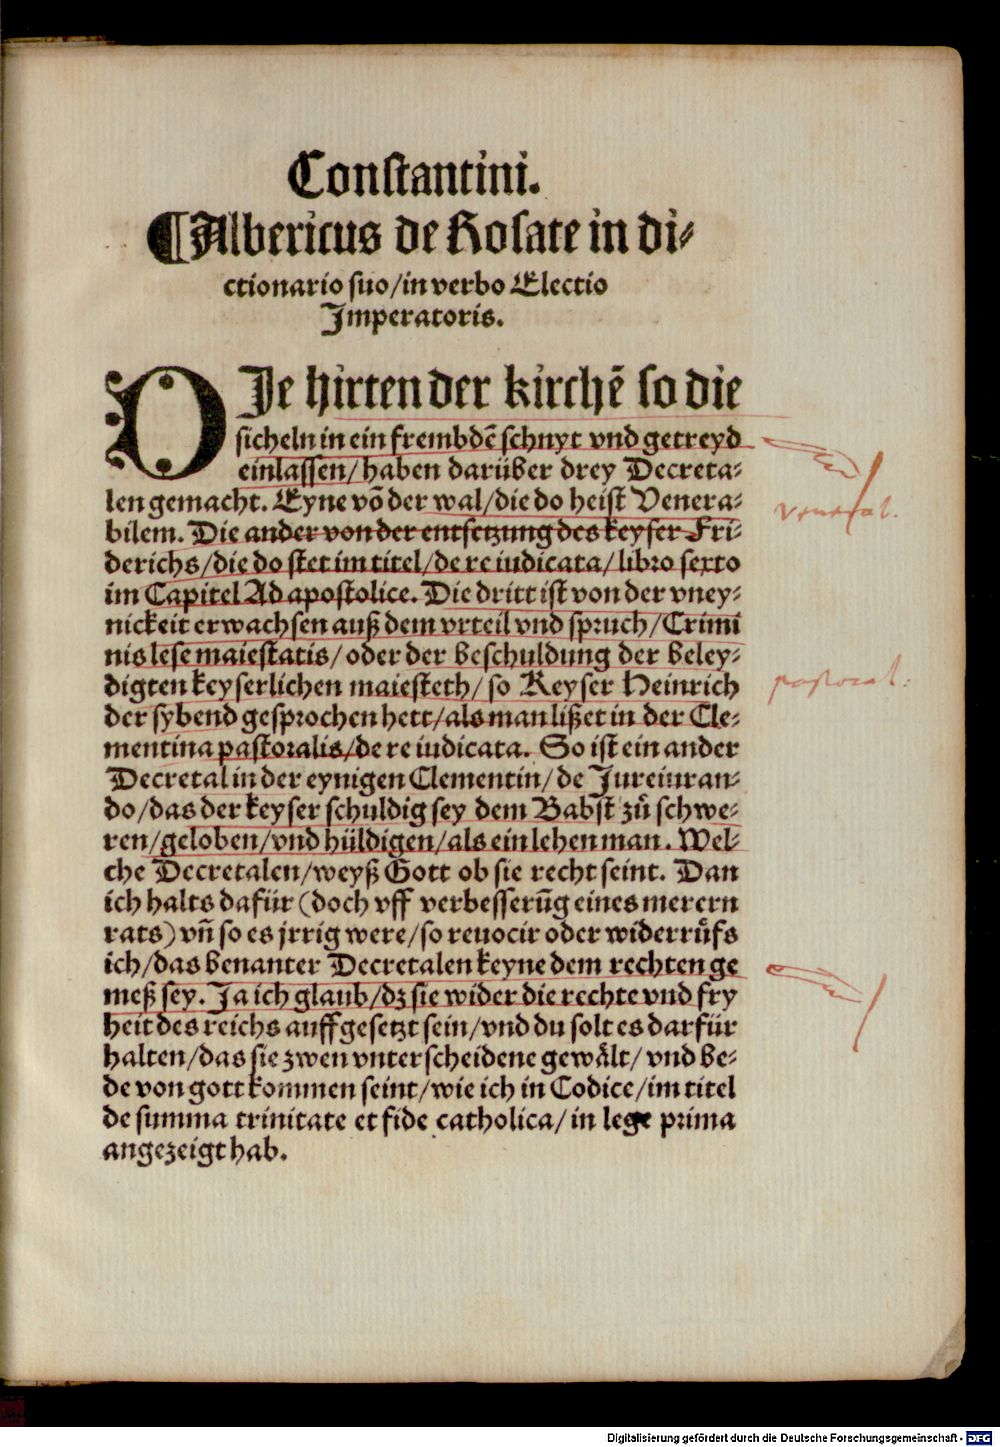 Constantini.
¶Albericus de Rosate in di⸗
ctionario suo/in verbo Electio
Imperatoris.
DJe hirten der kirchē so die
sicheln in ein frembdē schnyt vnd getreyd
einlassen/haben darüber drey Decreta⸗
len gemacht. Eyne vō der wal/die do heist Venera⸗
bilem. Die ander von der entsetzung des keyser Fri⸗
derichs/die do stet im titel/de re iudicata/libro sexto
im Capitel Ad apostolice. Die dritt ist von der vney⸗
nickeit erwachsen auß dem vrteil vnd spruch/Crimi
nis lese maiestatis/oder der beschuldung der beley⸗
digten keyserlichen maiesteth/so Keyser Heinrich
der sybend gesprochen hett/als man lißet in der Cle⸗
mentina pastoralis/de re iudicata. So ist ein ander
Decretal in der eynigen Clementin/de Jureiuran⸗
do/das der keyser schuldig sey dem Babst zů schwe⸗
ren/geloben/vnd hüldigen/als ein lehen man. Wel⸗
che Decretalen/weyß Gott ob sie recht seint. Dan
ich halts dafür (doch vff verbesserūg eines merern
rats) vn̄ so es jrrig were/so reuocir oder widerrůfs
ich/das benanter Decretalen keyne dem rechten ge
meß sey. Ja ich glaub/dz sie wider die rechte vnd fry
heit des reichs auffgesetzt sein/vnd du solt es darfür
halten/das sie zwen vnterscheidene gewålt/vnd be⸗
de von gott kommen seint/wie ich in Codice/im titel
de summa trinitate et fide catholica/in lege prima
angezeigt hab.
venerab.
pastoral.
Digitalisierung gefördert durch die Deutsche Forschungsgemeinschaft - DFG